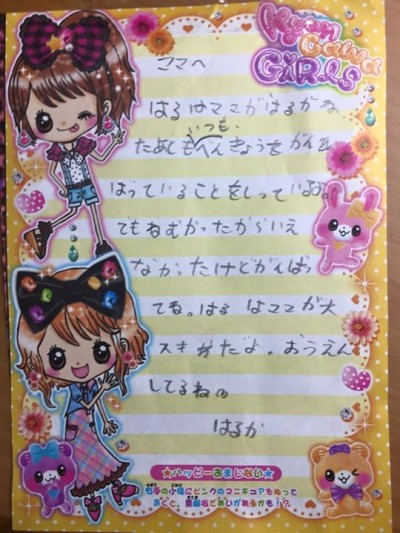 Kyun Cawa
GiRLS
ママへ
はるはママがはるかな
いつも
ためにもべんきょうをがんば
はっていることをしっているよ。
でもねむかったからいえ
なかったけどがんばっ
てね。はるはママが大
スキだよ。おうえん
してるねの
はるか
★ハッピーおまじない★
右手の小指にピンクのマニキュアをぬって
おくと、素敵な出あいがあるかも!?